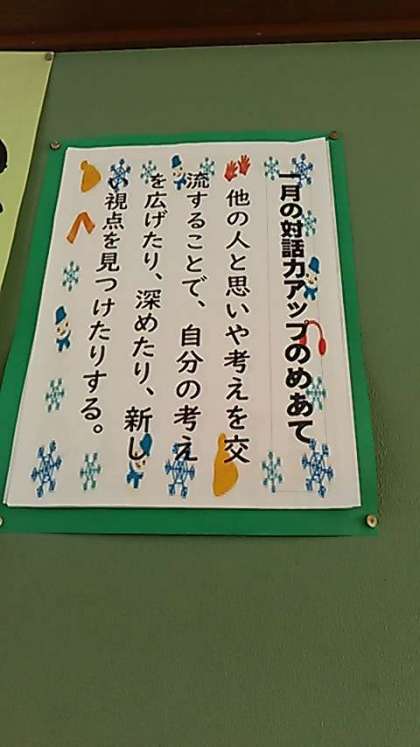 一月の対話力アップのめあて
他の人と思いや考えを交
流することで、自分の考え
を広げたり、深めたり、新し
い視点を見つけたりする。